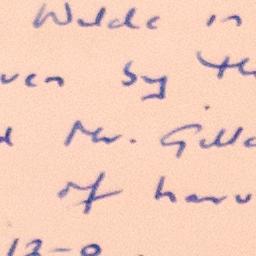 Wilde in
ven by th
Mr. Gill
of harv
13-0